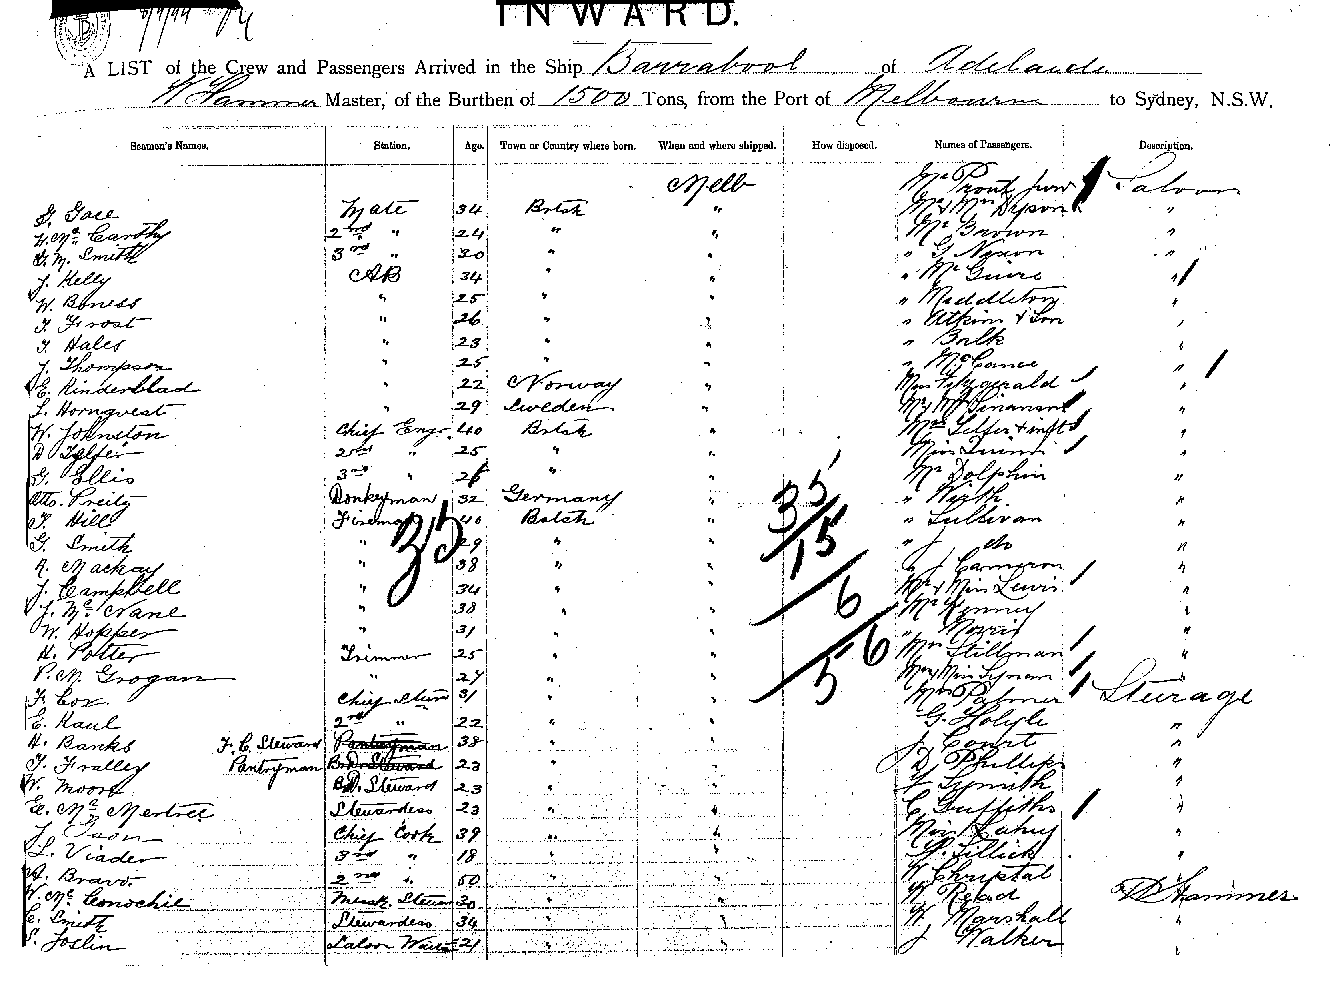 INWARD.
A LIST of the Crew and Passengers Arrived in the Ship Barrabool of Adelaide
W Hammer Master, of the Burthen of 1500 Tons, from the Port of Melbourne to Sydney, N.S.W.
Seamen's Names. Station. Age. Town or Country where born. When and where shipped. How disposed. Names of Passengers. Description.
Melb Mr Prout junr Saloon
G. Gace Mate 34 Btsh " Mr & Mrs Dyson "
Mc Carthy 2nd " 24 " " Mr Brown "
G. M. Smith 3rd " 30 " " " G Nixon "
J. Kelly AB 34 " " " McGuire "
W. Boness " 25 " " " Middleton "
T. Frost " 26 " " " Atkins & Son "
T. Hales " 23 " " " Balk "
J. Thompson " 25 " " " McCance "
E. Rinderblad " 22 Norway " Miss Fitzgerald "
L. Hornqvest " 29 Sweden " "
W. Johnston Chief Engr. 40 Btsh " Mrs Selfer & inft "
D Telfer 2nd " 25 " " Miss Quinn "
G. Ellis 3rd " 26 " " Mr Dolphin "
Otto. Preitz Donkeyman 32 Germany " " Wirth "
T. Hill Fireman 40 Btsh " " Sullivan "
G. Smith " 29 " " " J do "
A. Mackay " 38 " " " J Cameron "
J. Campbell " 34 " " Mr & Miss Lewis "
J. Mc Nane " 38 " " Mr Kenney "
W. Hopper " 31 " " " Norris "
H. Potter Trimmer 25 " " Mrs Stillman "
P. M. Grogan " 27 " " "
F. Cox Chief Stewd 31 " " Mrs Palmer Sturage
E. Kaul 2nd " 22 " " G. Holyle
H. Banks F. C. Steward Pantryman 38 " " J Court "
T. Fralley Pantryman B.D. Steward 23 " " D Phillips "
W. Moore B.D. Steward 23 " " "
E. Mc Mertrie Stewardess 23 " " C Griffiths "
J. Chief Cook 39 " " Miss Lahey "
L. Viader 3rd " 18 " " Lillick "
A. Bravo. 2nd " 50 " " W Christal "
W. Mc Conochie Messr. Steward 30 " " W Read W Hammer
C. Smith Stewardess 34 " " W Marshall "
S. Joslin Saloon Waiter 21 " " J Walker "
35
35
15
6
56